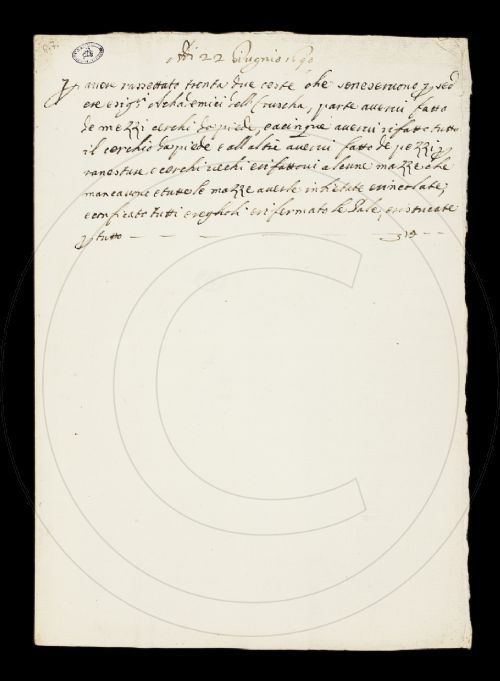 Adi 22 Giugnio 1690
P avere rassettato trenta due ceste che sene servono p sed
ere e sig.ri Achademici della Cruscha, parte avervi fatto
de mezzi cerchi da piede, e a cinque avervi rifatto tutto
il cerchio da piede e all altre avervi fatto de pezzi p
e cerchi vechi e rifattovi alcune mazze che
mancavano e tutte le mazze averle e rincolate,
e conficato tutti e regholi e rifermato le Pale, e ristucate
p tutto